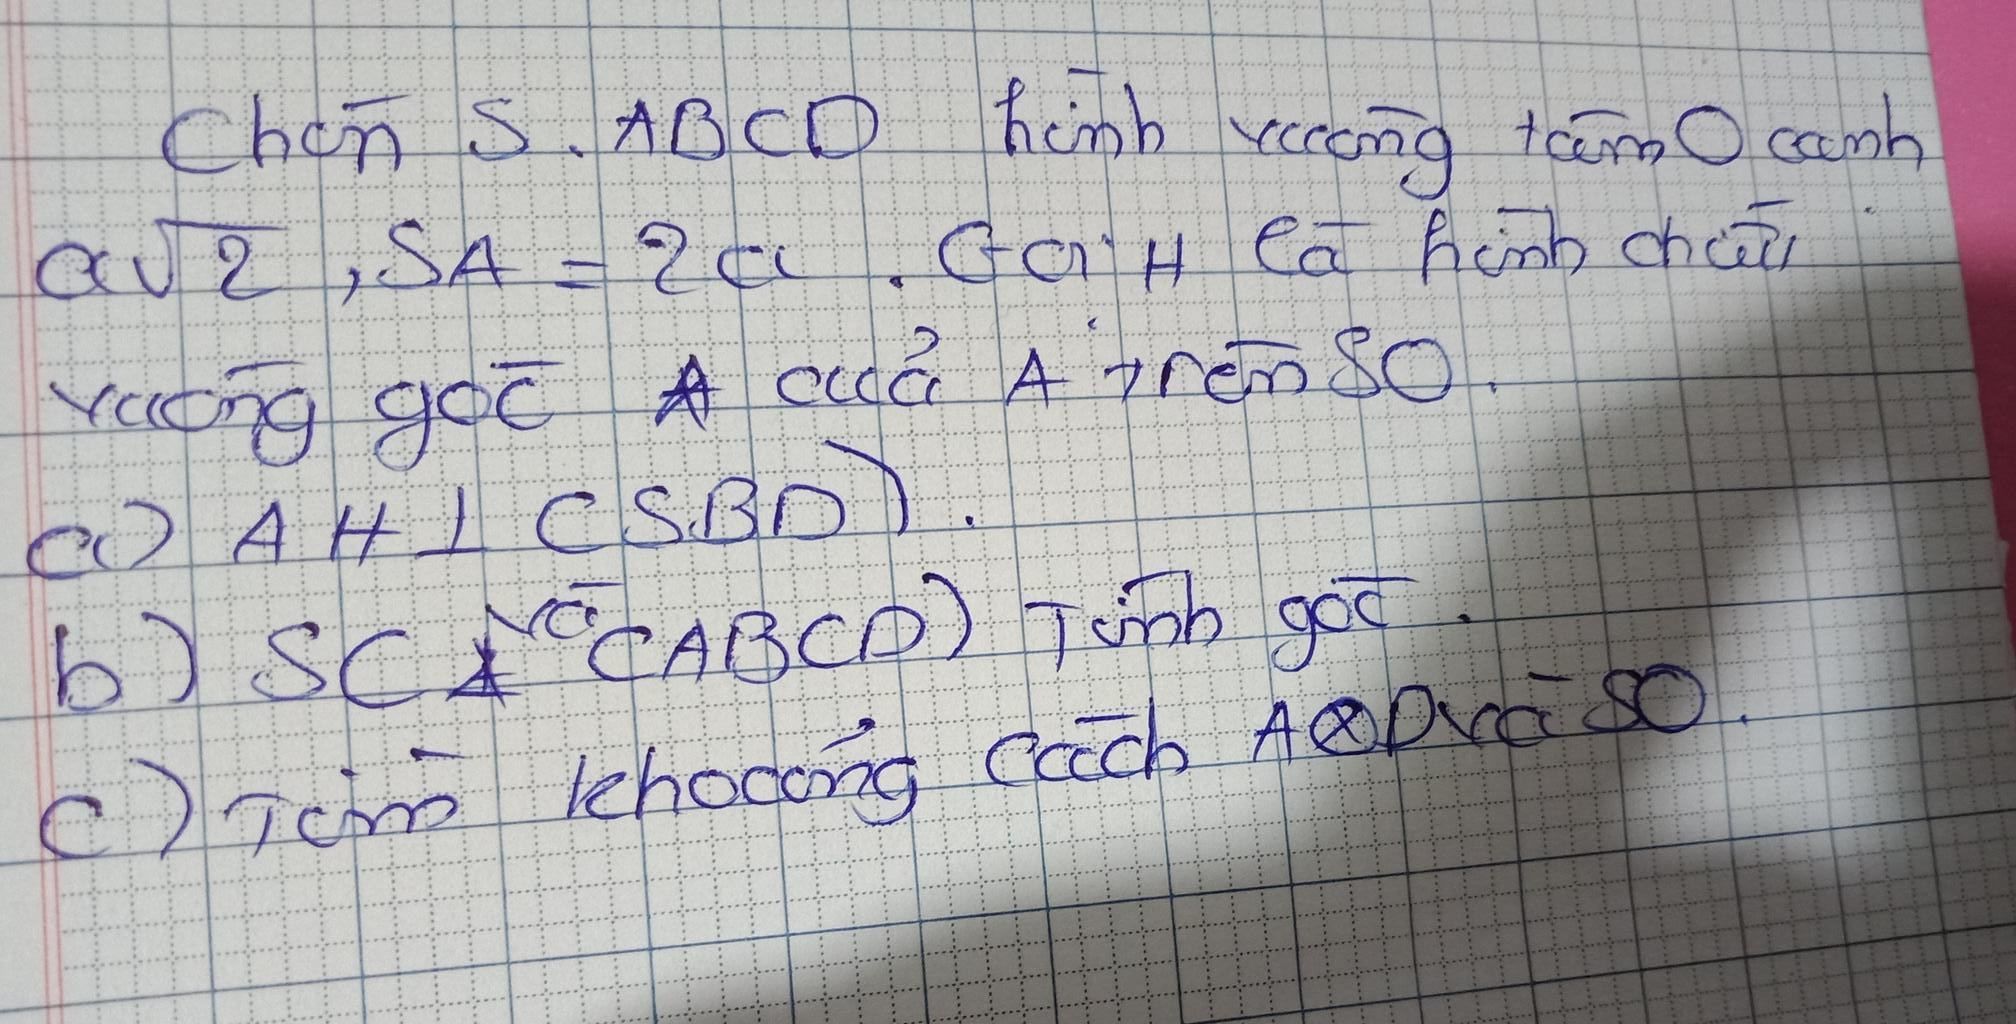 Chóp S.ABCD hình vuông tâm O cạnh
a√2, SA = 2a. Gọi H là hình chiếu
vuông góc của A trên SO.
a) AH ⊥ (SBD).
b) SC và (ABCD) Tính góc.
c) Tìm khoảng cách AD và SO.